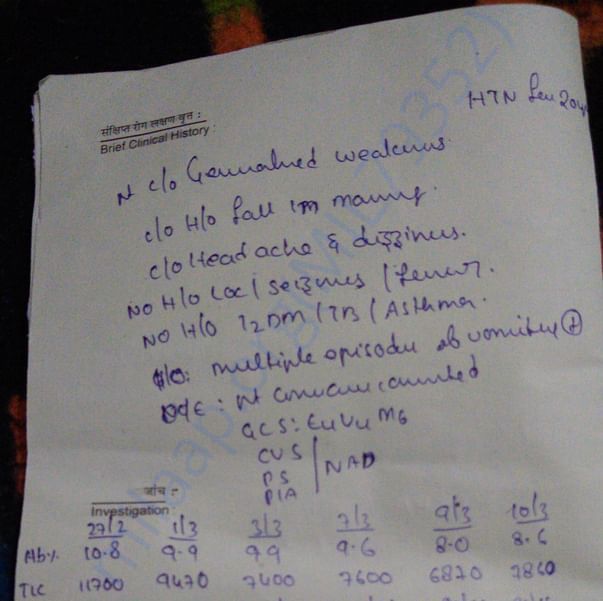 संक्षिप्त रोग लक्षण वृत्त :
Brief Clinical History :
HTN
c/o weakness
c/o H/o fall in morning.
c/o Headache & dizziness.
NO H/o LOC / Seizures / fever.
NO H/o T2DM / TB / Asthma.
H/o: multiple episodes of vomiting +
O/E:
GCS: E4V4M6
CVS
RS NAD
P/A
जांच :
Investigation :
27/2 1/3 3/3 7/3 9/3 10/3
Hb% 10.8 9.9 9.9 9.6 8.0 8.6
TLC 11700 9470 7400 7600 6870 7860